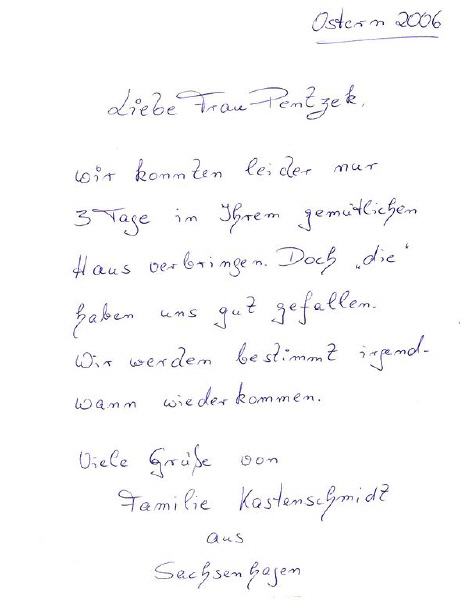 Ostern 2006
Liebe Frau Pentzek,
wir konnten leider nur
3 Tage in Ihrem gemütlichen
Haus verbringen. Doch „die“
haben uns gut gefallen.
Wir werden bestimmt irgend-
wann wiederkommen.
Viele Grüße von
Familie Kastenschmidt
aus
Sachsenhagen